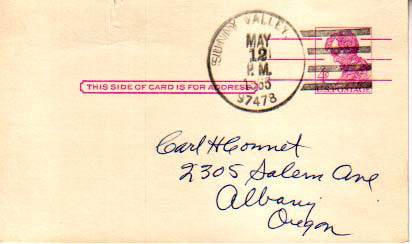 SUNNY VALLEY,
MAY
12
P.M.
97478
4¢
U.S. POSTAGE
THIS SIDE OF CARD IS FOR ADDRESS
Carl H Connet
2305 Salem Ave
Albany
Oregon